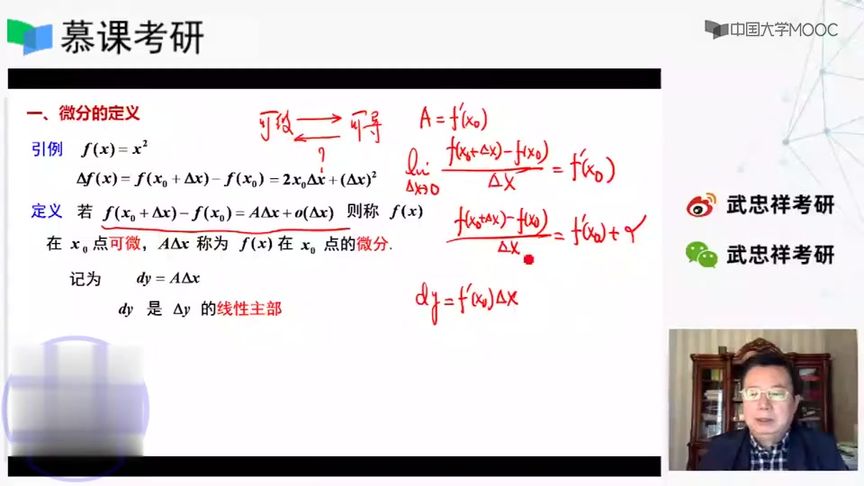 慕课考研
中国大学MOOC
一、微分的定义
引例 f(x) = x²
Δf(x) = f(x₀ + Δx) − f(x₀) = 2x₀Δx + (Δx)²
定义 若 f(x₀ + Δx) − f(x₀) = AΔx + o(Δx) 则称 f(x)
在 x₀ 点可微，AΔx 称为 f(x) 在 x₀ 点的微分.
记为 dy = AΔx
dy 是 Δy 的线性主部
可微 ⇄ 可导
?
A = f′(x₀)
lim Δx→0 (f(x₀+Δx) − f(x₀)) / Δx = f′(x₀)
(f(x₀+Δx) − f(x₀)) / Δx = f′(x₀) + α
dy = f′(x₀)Δx
武忠祥考研
武忠祥考研